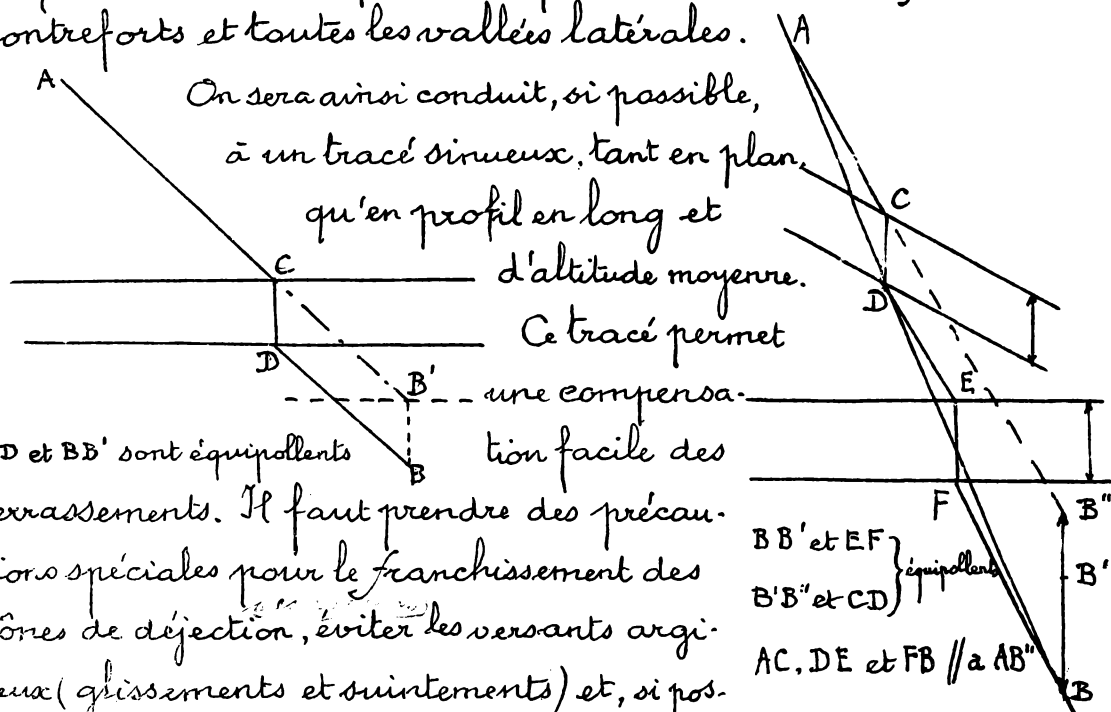 ontreforts et toutes les vallées latérales.
On sera ainsi conduit, si possible,
à un tracé sinueux, tant en plan,
qu'en profil en long et
d'altitude moyenne.
Ce tracé permet
une compensa-
tion facile des
errassements. Il faut prendre des précau-
ions spéciales pour le franchissement des
ônes de déjection, éviter les versants argi-
eux (glissements et suintements) et, si pos-
A
C
D
B'
B
D et BB' sont équipollents
A
C
D
E
F
B"
B'
B
BB' et EF } équipollents
B'B" et CD
AC, DE et FB // à AB"